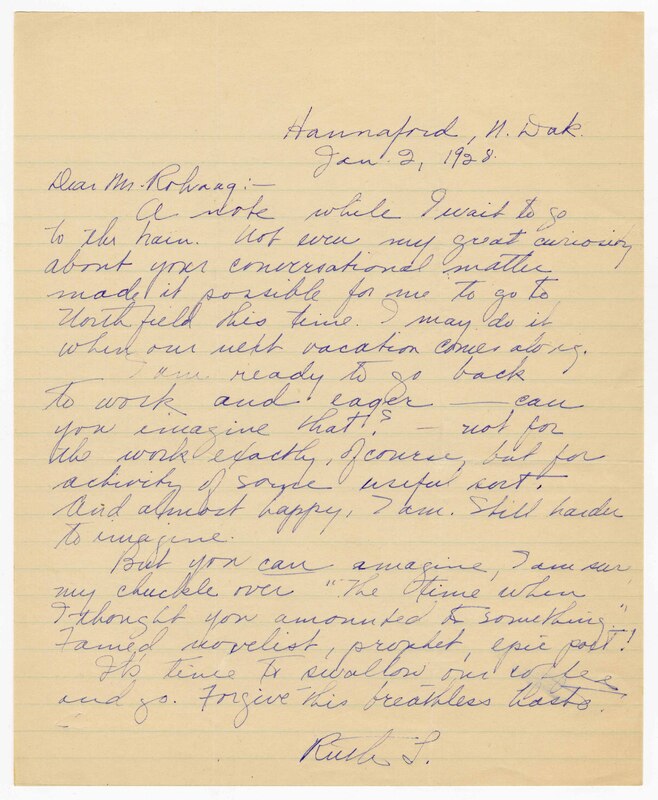 Hannaford, N. Dak.
Jan. 2, 1928.
Dear Mr. Rolvaag:—
A note while I wait to go
to the train. Not even my great curiosity
about your conversational matter
made it possible for me to go to
Northfield this time. I may do it
when our next vacation comes along.
I am ready to go back
to work and eager — can
you imagine that? — not for
the work exactly, of course, but for
activity of some useful sort.
And almost happy, I am. Still harder
to imagine.
But you can amagine, I am sure
my chuckle over "the time when
I thought you amounted to something."
Famed novelist, prophet, epic poet!
It's time to swallow our coffee
and go. Forgive this breathless haste.
Ruth L.